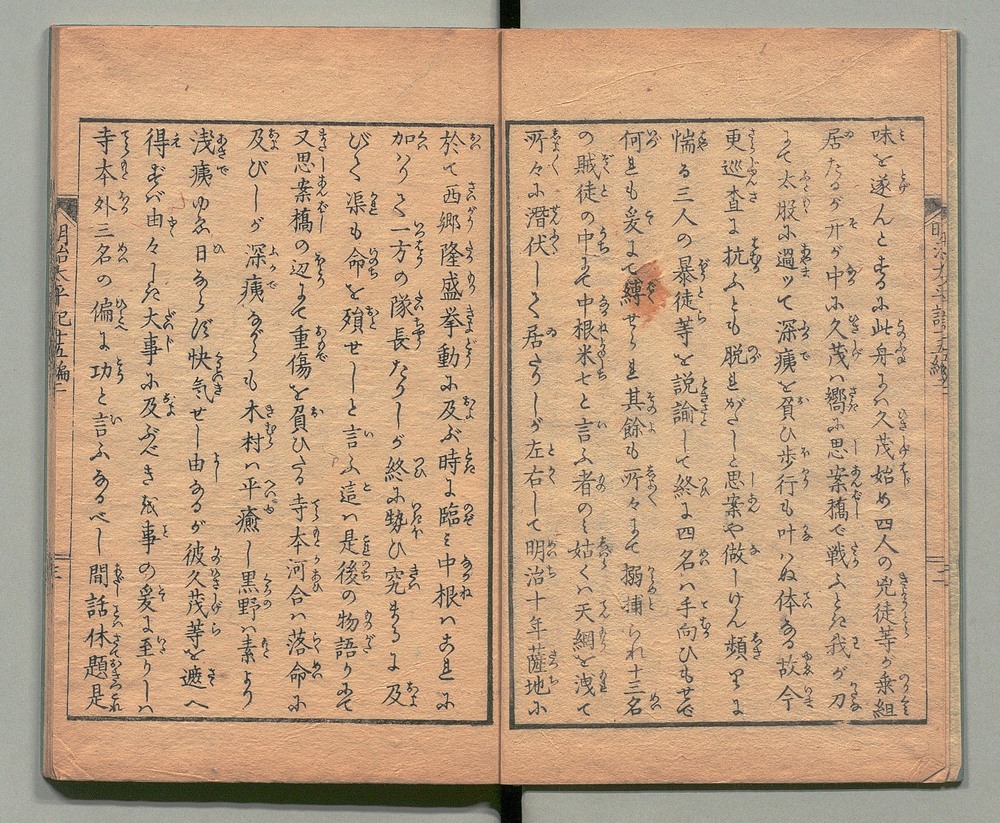 味を遂んとするに此舟には久茂始め四人の兇徒等が乗組
居たるが开が中に久茂ハ嚮に思案橋で戦ふとき我が刀
にて太股に過ッて深痍を負ひ歩行も叶ハぬ体なる故今
更巡査に抗ふとも脱れがたしと思案や做しけん頻りに
惴る三人の暴徒等を説諭して終に四名ハ手向ひもせで
何れも爰にて縛せられ其餘も所々にて搦捕られ十三名
の賊徒の中にて中根米七と言ふ者のミ姑くハ天網を洩て
所々に潜伏してく居たりしが左右して明治十年薩地に
於て西郷隆盛挙動に及ぶ時に臨ミ中根ハこれに
加はりて一方の隊長たりしが終に勢ひ究まるに及
びて渠も命を殞せしと言ふ這ハ是後の物語りにて
又思案橋の辺にて重傷を負ひたる寺本河合ハ落命に
及びしが深痍ながらも木村ハ平癒し黒野ハ素より
浅痍ゆゑ日ならず快気せし由なるが彼久茂等を遮へ
得ずバ由々しき大事に及ぶべきを事の爰に至りしハ
寺本外三名の偏に功と言ふなるべし間話休題是
明治太平記十五編二